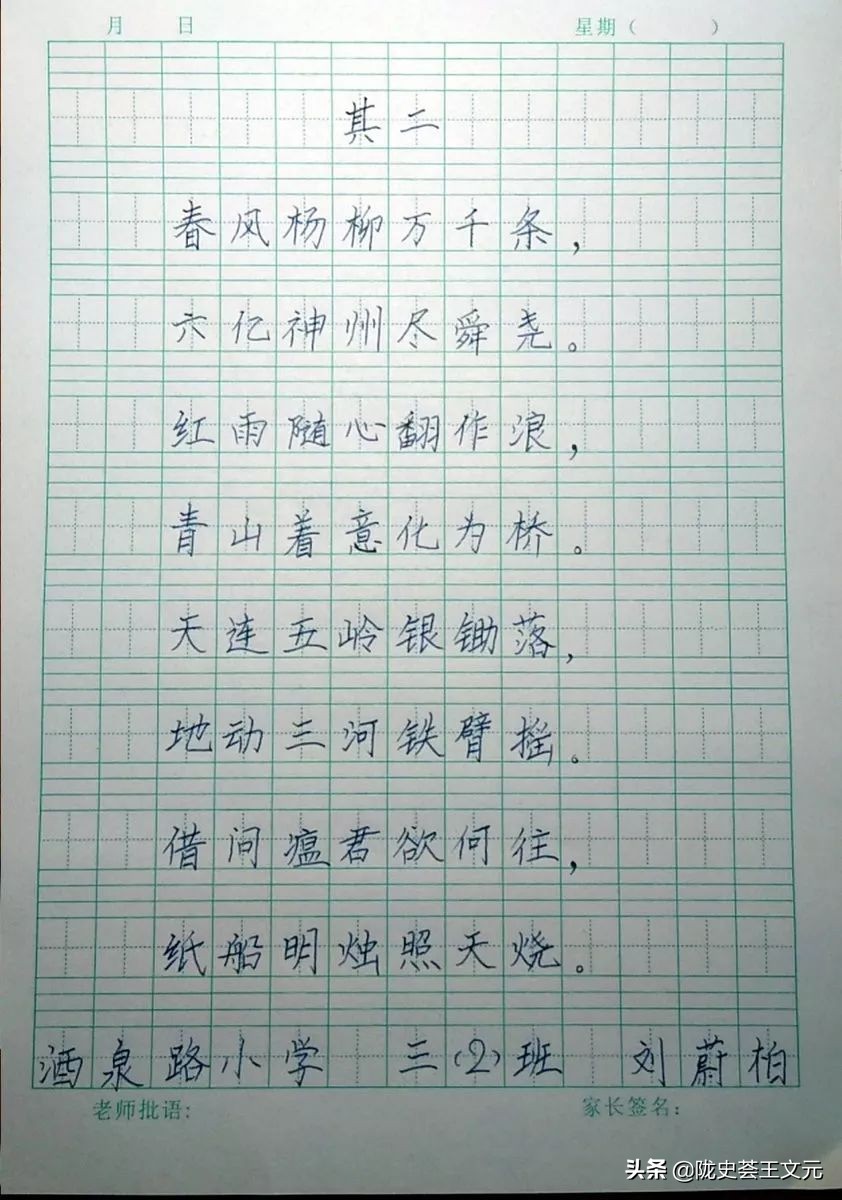 月 日 星期( )
其二
春风杨柳万千条，
六亿神州尽舜尧。
红雨随心翻作浪，
青山着意化为桥。
天连五岭银锄落，
地动三河铁臂摇。
借问瘟君欲何往，
纸船明烛照天烧。
酒泉路小学 三(2)班 刘蔚柏
老师批语: 家长签名:
头条 @陇史荟王文元